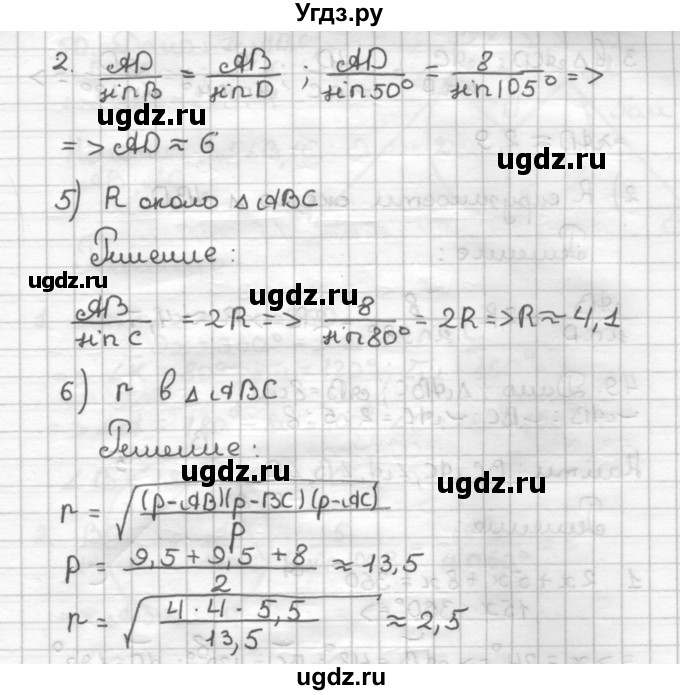 Угдз.ру
2. AD/sin B = AB/sin D ; AD/sin 50° = 8/sin 105° =>
ugdz.ru
=> AD ≈ 6
ugdz.ru
5) R около △ABC
Решение:
ugdz.ru
ugdz.ru
AB/sin C = 2R => 8/sin 80° = 2R => R ≈ 4,1
ugdz.ru
6) r в △ABC
Решение:
ugdz.ru
ugdz.ru
r = √((p-AB)(p-BC)(p-AC)/p)
p = (9,5 + 9,5 + 8)/2 ≈ 13,5
ugdz.ru
r = √(4 · 4 · 5,5/13,5) ≈ 2,5
ugdz.ru
ugdz.ru